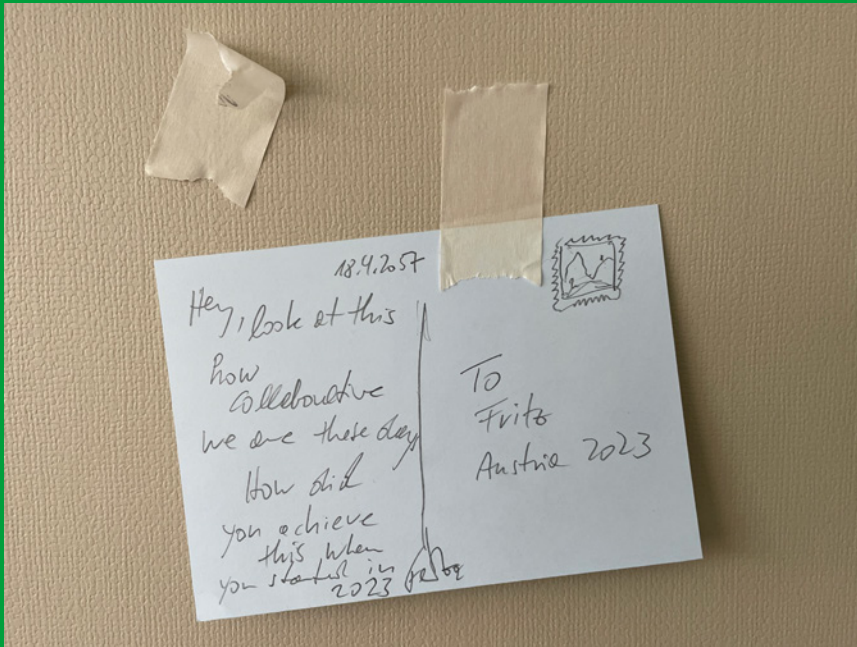 18.4.2057
Hey, look at this
how
collaborative
we are these days
How did
you achieve
this when
you started in
2023
To
Fritz
Austria 2023